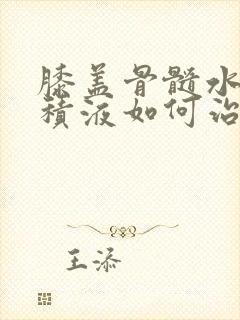 膝盖骨髓水
积液如何治
王添